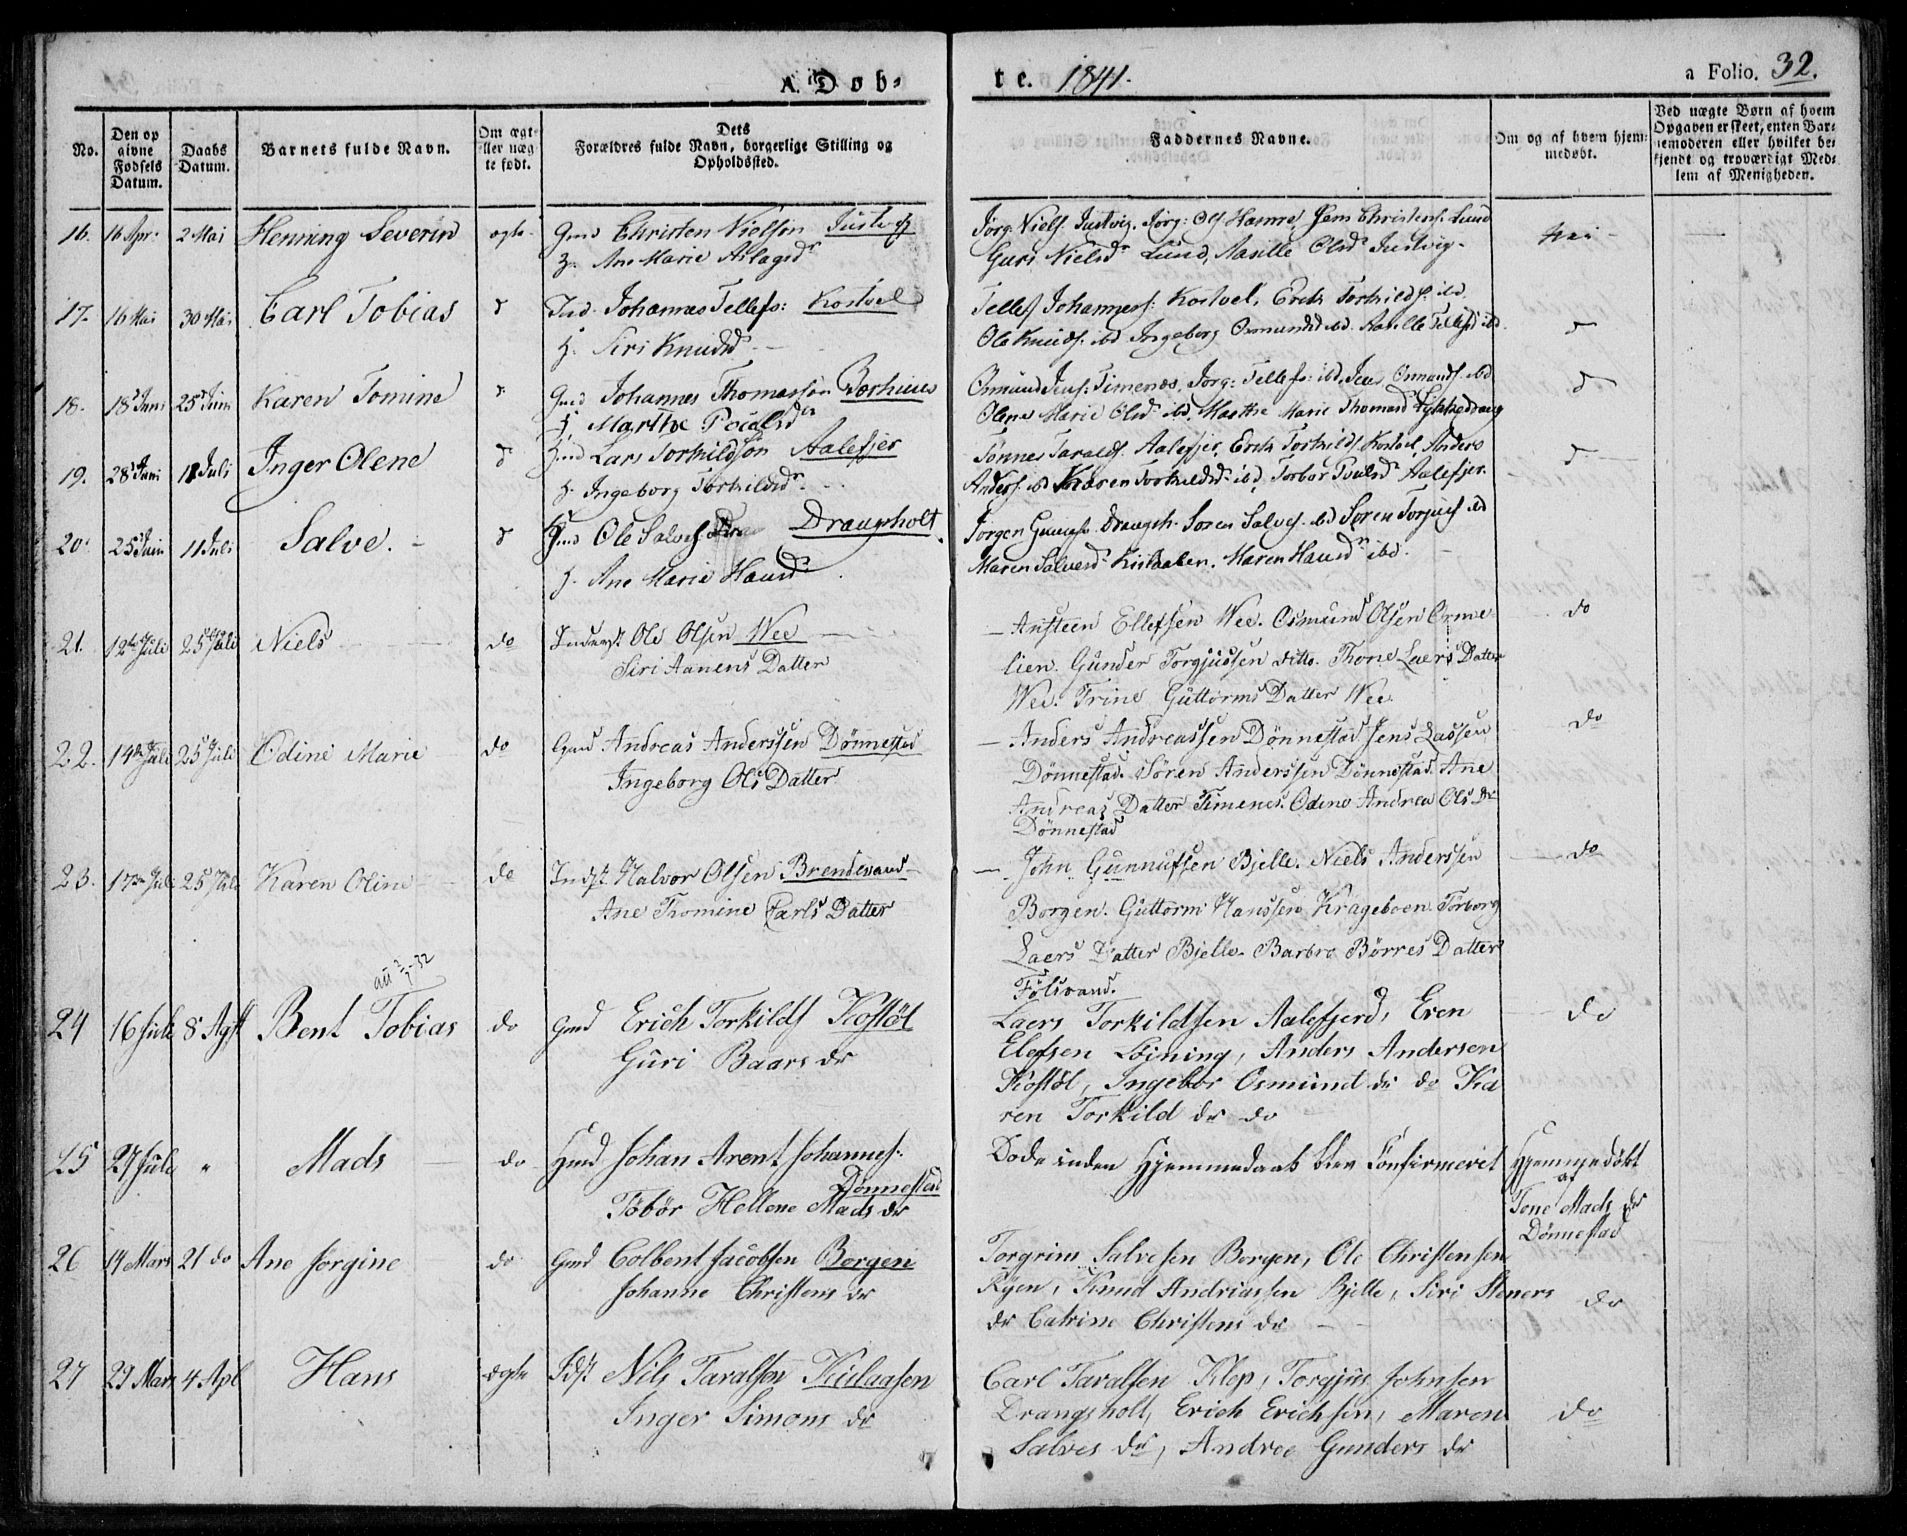 A. Døb-
te. 1841.
a Folio. 32.
No.
Den op
givne
Fødsels
Datum.
Daabs
Datum.
Barnets fulde Navn.
Om ægt-
eller uæg-
te født.
Dets
Forældres fulde Navn, borgerlige Stilling og
Opholdssted.
Faddernes Navne.
Om og af hvem hjem-
medøbt.
Ved uægte Børn af hvem
Opgaven er skeet, enten Bar-
nemoderen eller hvilket be-
kjendt og troværdigt Med-
lem af Menigheden.
16. 16 Apr: 2 Mai Henning Severin ægte. Gmd Christen Nielsøn Justvig
H. Ane Marie Aslagsdr
Jørg. Niels. Justvig. Jørg: Ols Hamre, Jens Christens. Lund
Guri Nielsdr Lund, Aaselle Olsdr Justvig.
Nei
17. 16 Mai 30 Mai Carl Tobias d Ind. Johannes Tellefs: Kostøel
H. Siri Knudsd.
Tellef Johannes: Kostøel, Erich Torkilds. ibd
Ole Knuds. ibd Ingeborg Osmundsd ibd. Aaselle Tellefsd ibd.
d
18. 18 Juni 25 Juni Karen Tomine d Gmd Johannes Thomassøn
H. Marthe Poulsdr
Osmund Jens. Timenes, Jørg: Tellefs: ibd, Jens Osmunds. ibd
Olene Marie Olsd ibd. Marthe Marie Thomasd Lykkedrang
d
19. 28 Juni 11 Juli Inger Olene d Gmd Lars Torkildsøn Aalefjer
H. Ingeborg Torkildsdr.
Tønnes Taralds. Aalefjer, Erich Torkilds. Kostøel, Anders
Anders. ibd Karen Torkildsdr ibd, Torbor Poulsdr Aalefjer.
d
20. 25 Juni 11 Juli Salve. d Gmd Ole Salves. Drangsholt
H. Ane Marie Hansdr
Jørgen Drangsh. Søren Salves. ibd Søren Torjus ibd
Maren Salvesd Kislaasen. Maren Hansdr ibd.
21. 12te Juli 25de Juli Niels do Inderst Ole Olsen Wee
Siri Aanens Datter
Ansteen Ellefsen Wee. Osmund Olsen Orme-
lien. Gunder Torgjussen ditto. Thone Laers Datter
Wee. Trine Guttorms Datter Wee.
do
22. 14de Juli 25 Juli Odine Marie do Gmd Andreas Anderssen Dønnestad
Ingeborg Ols Datter
Anders Andreassen Dønnestad Jens Lassen
Dønnestad. Søren Anderssen Dønnestad. Ane
Andreas Datter Timenes. Odine Andrea Ols Dr
Dønnestad
do
23. 17de Juli 25 Juli Karen Oline do Indst Halvor Olsen Brendevand
Ane Thomine Carls Datter
John Gunnufsen Bjelle. Niels Anderssen
Borgen. Guttorm Hanssen Krageboen. Torborg
Laers Datter Bjelle. Barbro Børres Datter
Følsvand.
do
att 2/7-32
24 16 Juli 8 Agst Bent Tobias do Gmd Erich Torkilds Kostøl
Guri Baars dr
Laers Torkildsen Aalefjerd, Even
Elefsen Løining, Anders Andersen
Kostøl, Ingebor Osmund dr do Ka
ren Torkild dr do
do
25 27 Juli " Mads do Hmd Johan Arent Johannes:
Dønnestad
Tobør Hellene Mads dr
Døde inden Hjemmedaab blev Confirmeret
Hjemmedøbt
af
Tone Mads dr
Dønnestad
26 14 Mars 21 do Ane Jørgine do Gmd Colbent Jacobsen Borgen
Johanne Christens dr
Torgrim Salvesen Borgen, Ole Christensen
Ryen, Knud Andriassen Bjelle, Siri Steners
dr Catrine Christens dr
do
27 29 Mars 4 Apl Hans ægte Idst Nils Taralsen Kislaasen
Inger Simons dr
Carl Taralsen Klep, Torgjus Johnsen
Drangsholt, Erich Erichsen, Maren
Salves dr, Andree Gunders dr
do